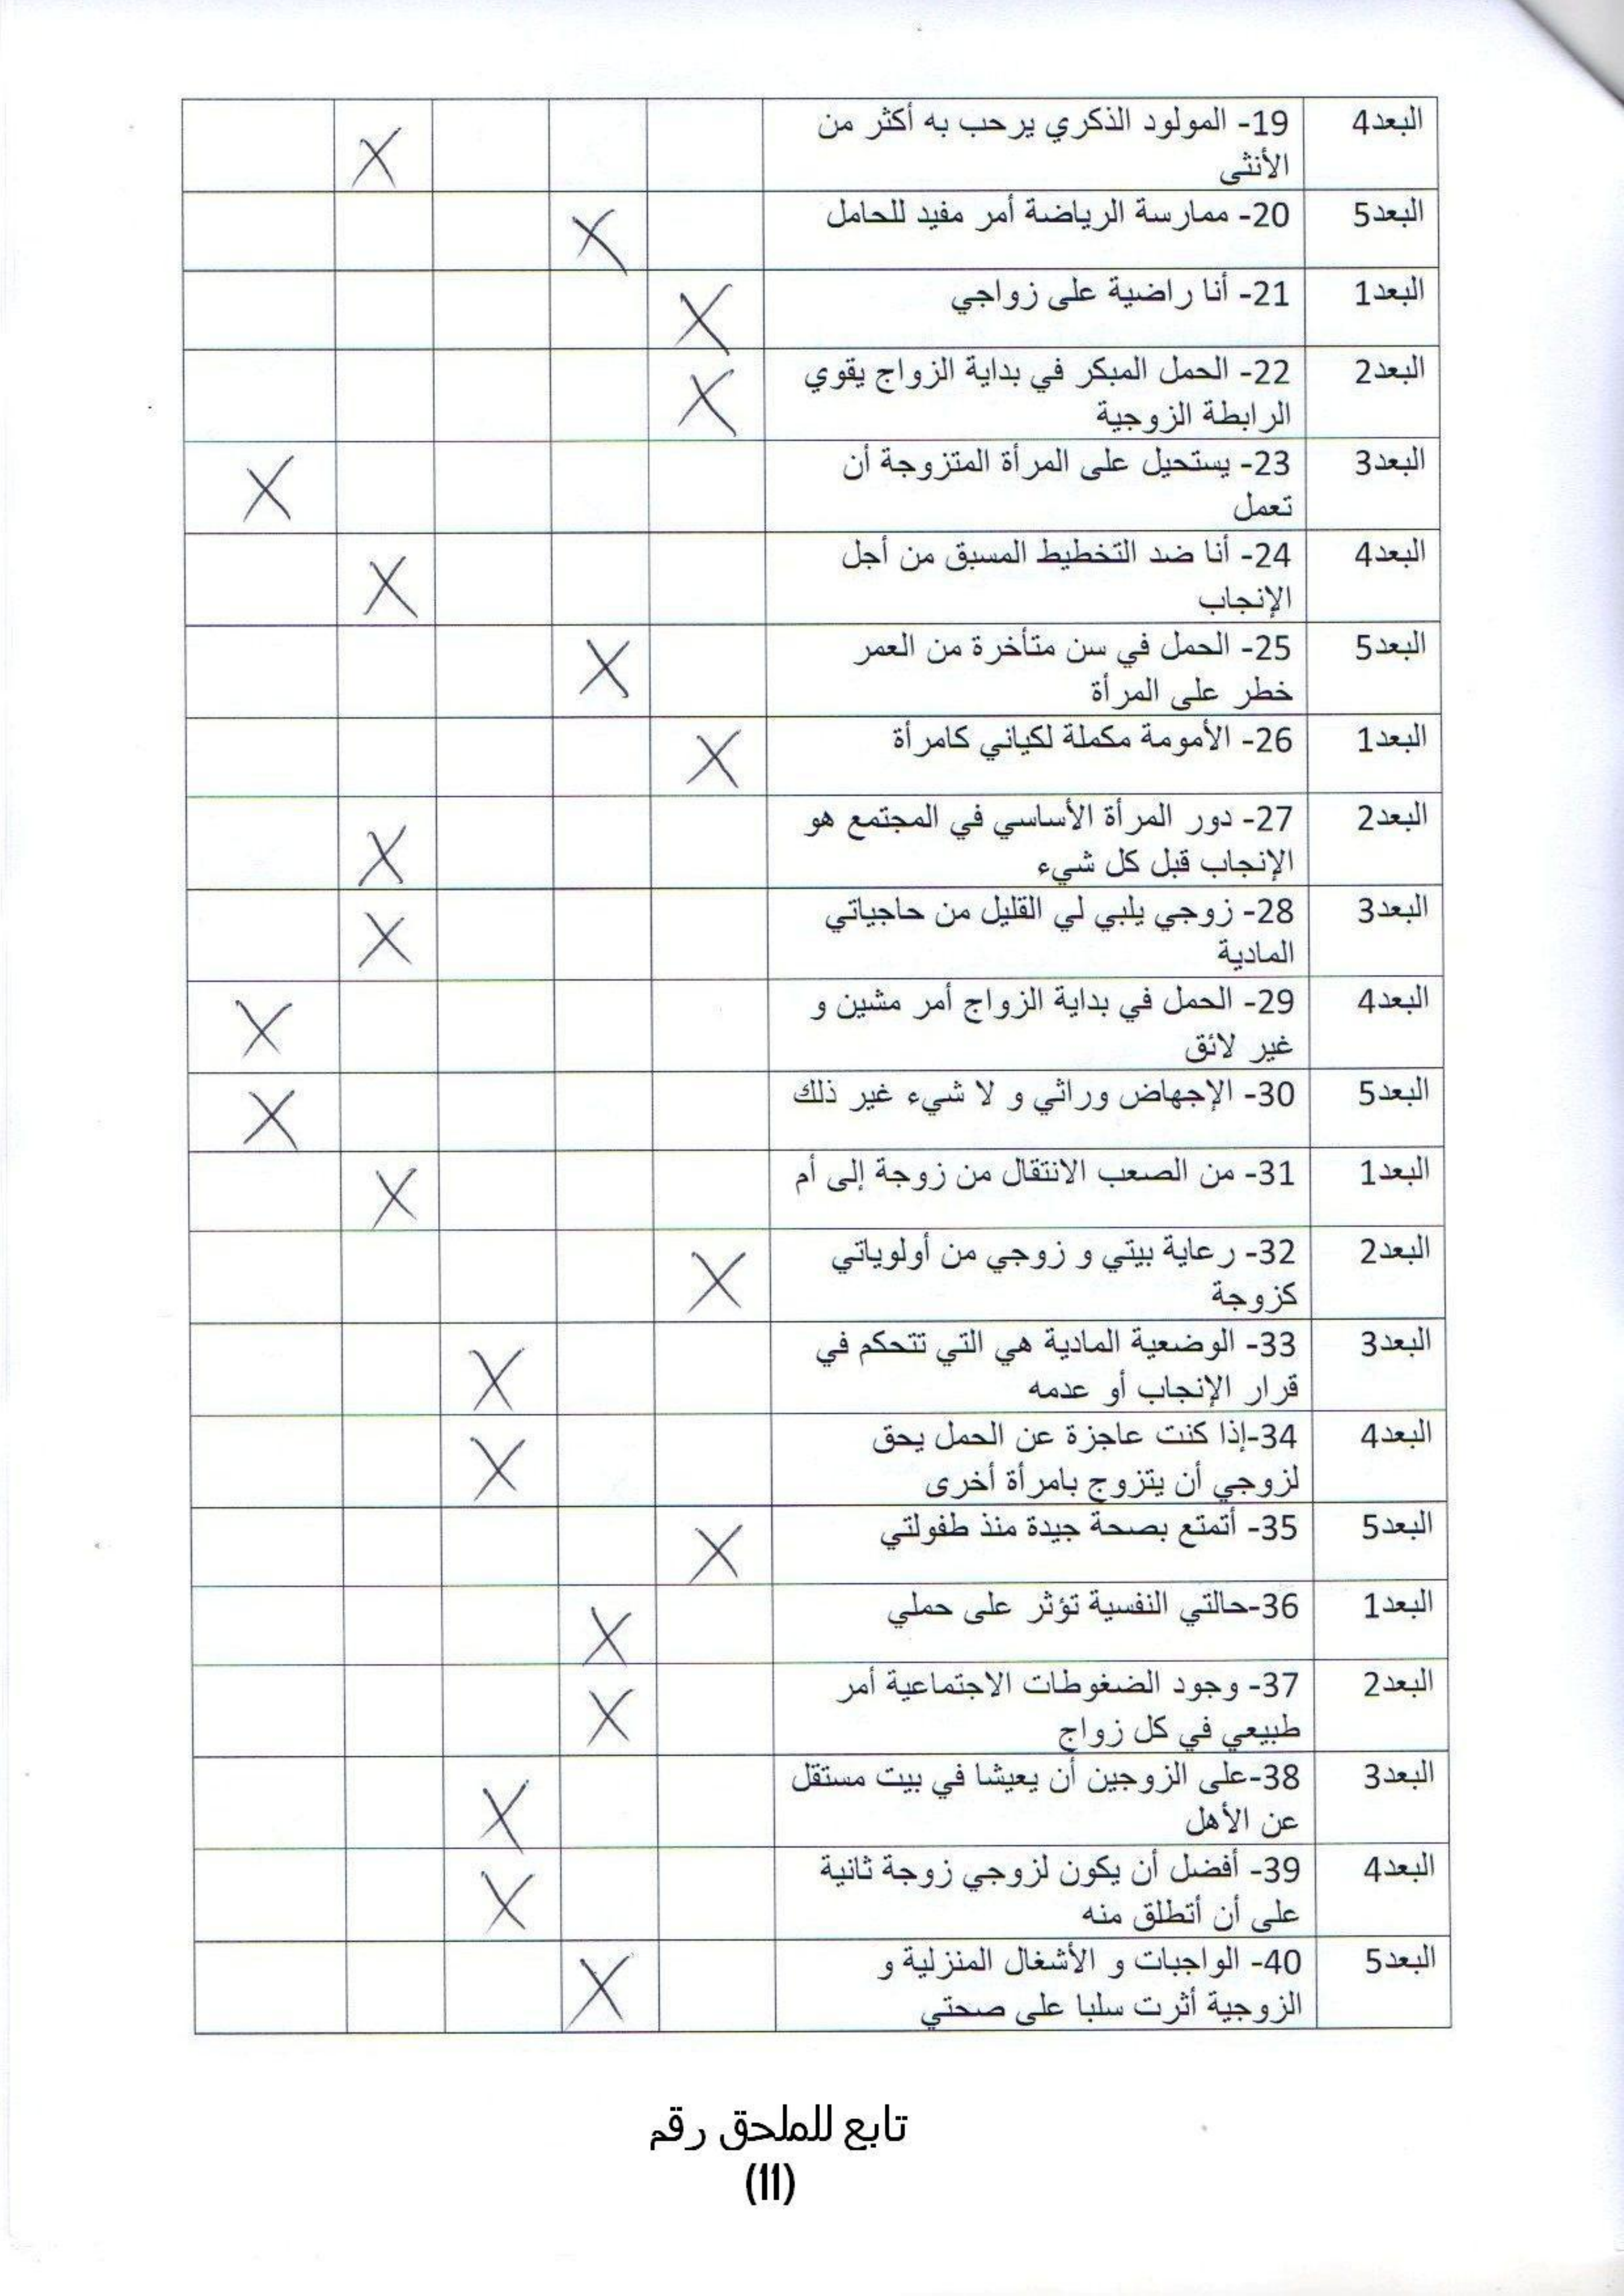 البعد4 19- المولود الذكري يرحب به أكثر من
الأنثى X
البعد5 20- ممارسة الرياضة أمر مفيد للحامل X
البعد1 21- أنا راضية على زواجي X
البعد2 22- الحمل المبكر في بداية الزواج يقوي
الرابطة الزوجية X
البعد3 23- يستحيل على المرأة المتزوجة أن
تعمل X
البعد4 24- أنا ضد التخطيط المسبق من أجل
الإنجاب X
البعد5 25- الحمل في سن متأخرة من العمر
خطر على المرأة X
البعد1 26- الأمومة مكملة لكياني كامرأة X
البعد2 27- دور المرأة الأساسي في المجتمع هو
الإنجاب قبل كل شيء X
البعد3 28- زوجي يلبي لي القليل من حاجياتي
المادية X
البعد4 29- الحمل في بداية الزواج أمر مشين و
غير لائق X
البعد5 30- الإجهاض وراثي و لا شيء غير ذلك X
البعد1 31- من الصعب الانتقال من زوجة إلى أم X
البعد2 32- رعاية بيتي و زوجي من أولوياتي
كزوجة X
البعد3 33- الوضعية المادية هي التي تتحكم في
قرار الإنجاب أو عدمه X
البعد4 34-إذا كنت عاجزة عن الحمل يحق
لزوجي أن يتزوج بامرأة أخرى X
البعد5 35- أتمتع بصحة جيدة منذ طفولتي X
البعد1 36-حالتي النفسية تؤثر على حملي X
البعد2 37- وجود الضغوطات الاجتماعية أمر
طبيعي في كل زواج X
البعد3 38-على الزوجين أن يعيشا في بيت مستقل
عن الأهل X
البعد4 39- أفضل أن يكون لزوجي زوجة ثانية
على أن أتطلق منه X
البعد5 40- الواجبات و الأشغال المنزلية و
الزوجية أثرت سلبا على صحتي X
تابع للملحق رقم
(11)